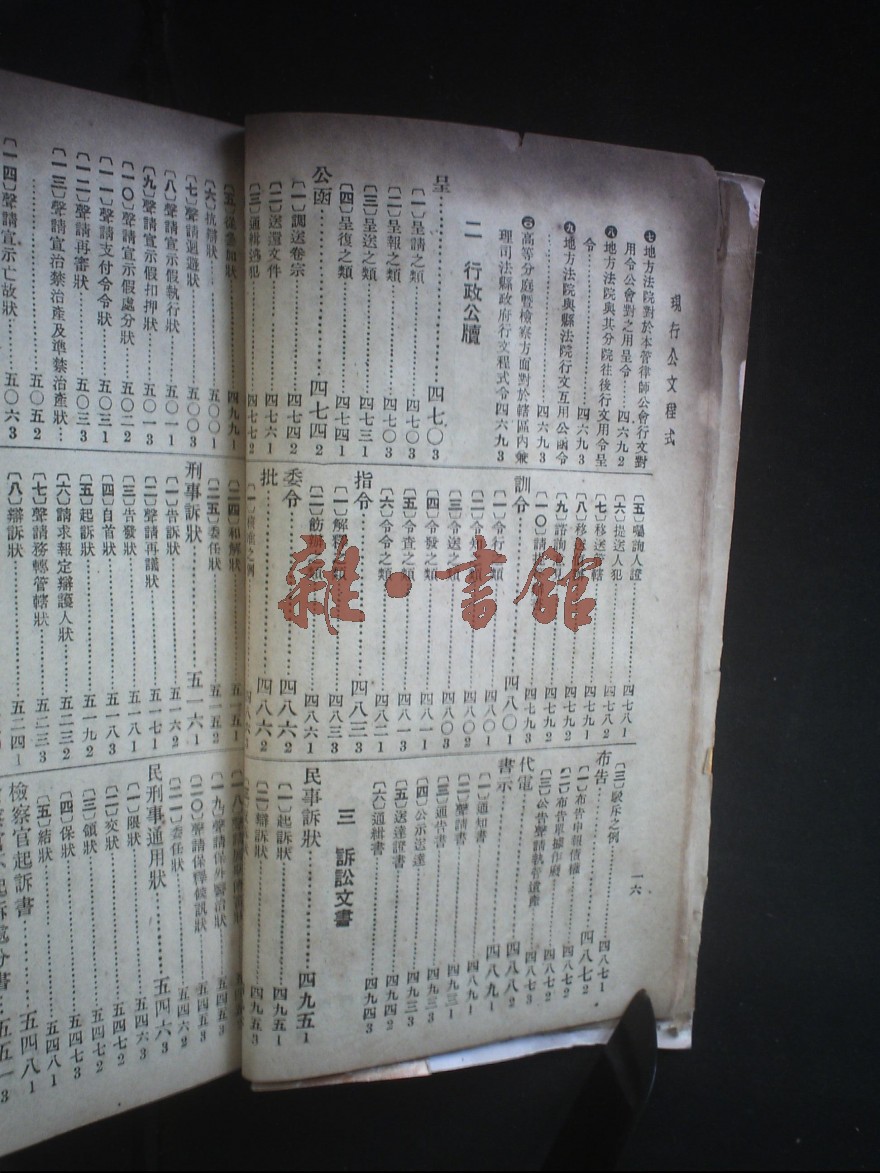 現行公文程式
一六
七 地方法院對於本管律師公會行文對
用令公會對之用呈令……四六九2
八 地方法院與其分院往後行文用令呈
令……四六九3
九 地方法院與縣法院行文互用公函令
……四六九3
高等分庭暨檢察方面對於轄區內兼
理司法縣政府行文程式令四六九3
二 行政公牘
呈……四七〇3
〔一〕呈請之類……四七〇3
〔二〕呈報之類……四七〇3
〔三〕呈送之類……四七三1
〔四〕呈復之類……四七四1
公函……四七四2
〔一〕調送卷宗……四七四2
〔二〕送還文件……四七六1
〔三〕通緝逃犯……四七七2
〔五〕囑詢人證……四七八1
〔六〕提送人犯……四七八2
〔七〕移送管轄……四七九1
〔八〕移……四七九2
〔九〕諮詢……四七九2
〔一〇〕請……四七九3
訓令……四八〇1
〔一〕令行……四八〇1
〔二〕令知……四八〇2
〔三〕令送之類……四八〇3
〔四〕令發之類……四八一1
〔五〕令查之類……四八一3
〔六〕令令之類……四八二1
指令……四八三3
〔一〕解釋之類……四八三3
〔二〕飭辦之類……四八六1
委令……四八六2
批……四八六2
〔三〕駁斥之例……四八七1
布告……四八七2
〔一〕布告申報債權……四八七2
〔二〕布告單據作廢……四八七2
〔三〕公告聲請執管遺產……四八七3
代電……四八八2
書示……四八九1
〔一〕通知書……四八九1
〔二〕聲請書……四九三1
〔三〕通告書……四九三3
〔四〕公示送達……四九三3
〔五〕送達證書……四九四2
〔六〕通緝書……四九四3
三 訴訟文書
民事訴狀……四九五1
〔一〕起訴狀……四九五1
〔二〕辯訴狀……四九五3
〔五〕參加狀……四九九1
〔六〕抗辯狀……五〇〇1
〔七〕聲請迴避狀……五〇〇3
〔八〕聲請宣示假執行狀……五〇一1
〔九〕聲請宣示假扣押狀……五〇一3
〔一〇〕聲請宣示假處分狀……五〇二2
〔一一〕聲請支付命令狀……五〇三1
〔一二〕聲請再審狀……五〇三3
〔一三〕聲請宣治禁治產及準禁治產狀…
……五〇五2
〔一四〕聲請宣示亡故狀……五〇六3
〔二四〕和解狀……五一五1
〔二五〕委任狀……五一五2
刑事訴狀……五一六1
〔一〕告訴狀……五一六2
〔二〕聲請再議狀……五一七1
〔三〕告發狀……五一八1
〔四〕自首狀……五一八3
〔五〕起訴狀……五一九2
〔六〕請求報定辯護人狀……五二三2
〔七〕聲請移轉管轄狀……五二三3
〔八〕辯訴狀……五二四1
〔一九〕聲請保外醫治狀……五四五3
〔二〇〕聲請保釋候訊狀……五四五3
〔二一〕委任狀……五四六2
民刑事通用狀……五四六3
〔一〕限狀……五四六3
〔二〕交狀……五四七2
〔三〕領狀……五四七2
〔四〕保狀……五四七3
〔五〕結狀……五四八1
檢察官起訴書……五四八1
雜·書館